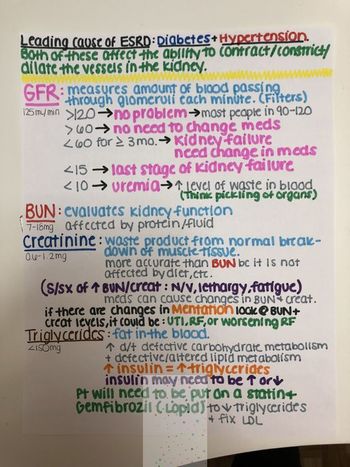 Leading cause of ESRD: Diabetes + Hypertension.
Both of these affect the ability to contract/constrict/
dilate the vessels in the kidney.
GFR: measures amount of blood passing
through glomeruli each minute. (Filters)
125ml/min >120 → no problem → most people in 90-120
>60 → no need to change meds
<60 for ≥ 3 mo. → kidney failure
need change in meds
<15 → last stage of kidney failure
<10 → uremia → ↑ level of waste in blood
(Think pickling of organs)
BUN: evaluates kidney function
7-18mg affected by protein/fluid
Creatinine: waste product from normal break-
0.6-1.2mg down of muscle tissue.
more accurate than BUN bc it is not
affected by diet, etc.
(S/Sx of ↑ BUN/Creat: N/V, lethargy, fatigue)
meds can cause changes in BUN + creat.
if there are changes in Mentation look @ BUN +
creat levels, it could be: UTI, RF, or worsening RF
Triglycerides: fat in the blood.
<150mg ↑ d/t defective carbohydrate metabolism
+ defective/altered lipid metabolism
↑ insulin = ↑ triglycerides
insulin may need to be ↑ or ↓
Pt will need to be put on a statin +
Gemfibrozil (Lopid) to ↓ triglycerides
+ fix LDL